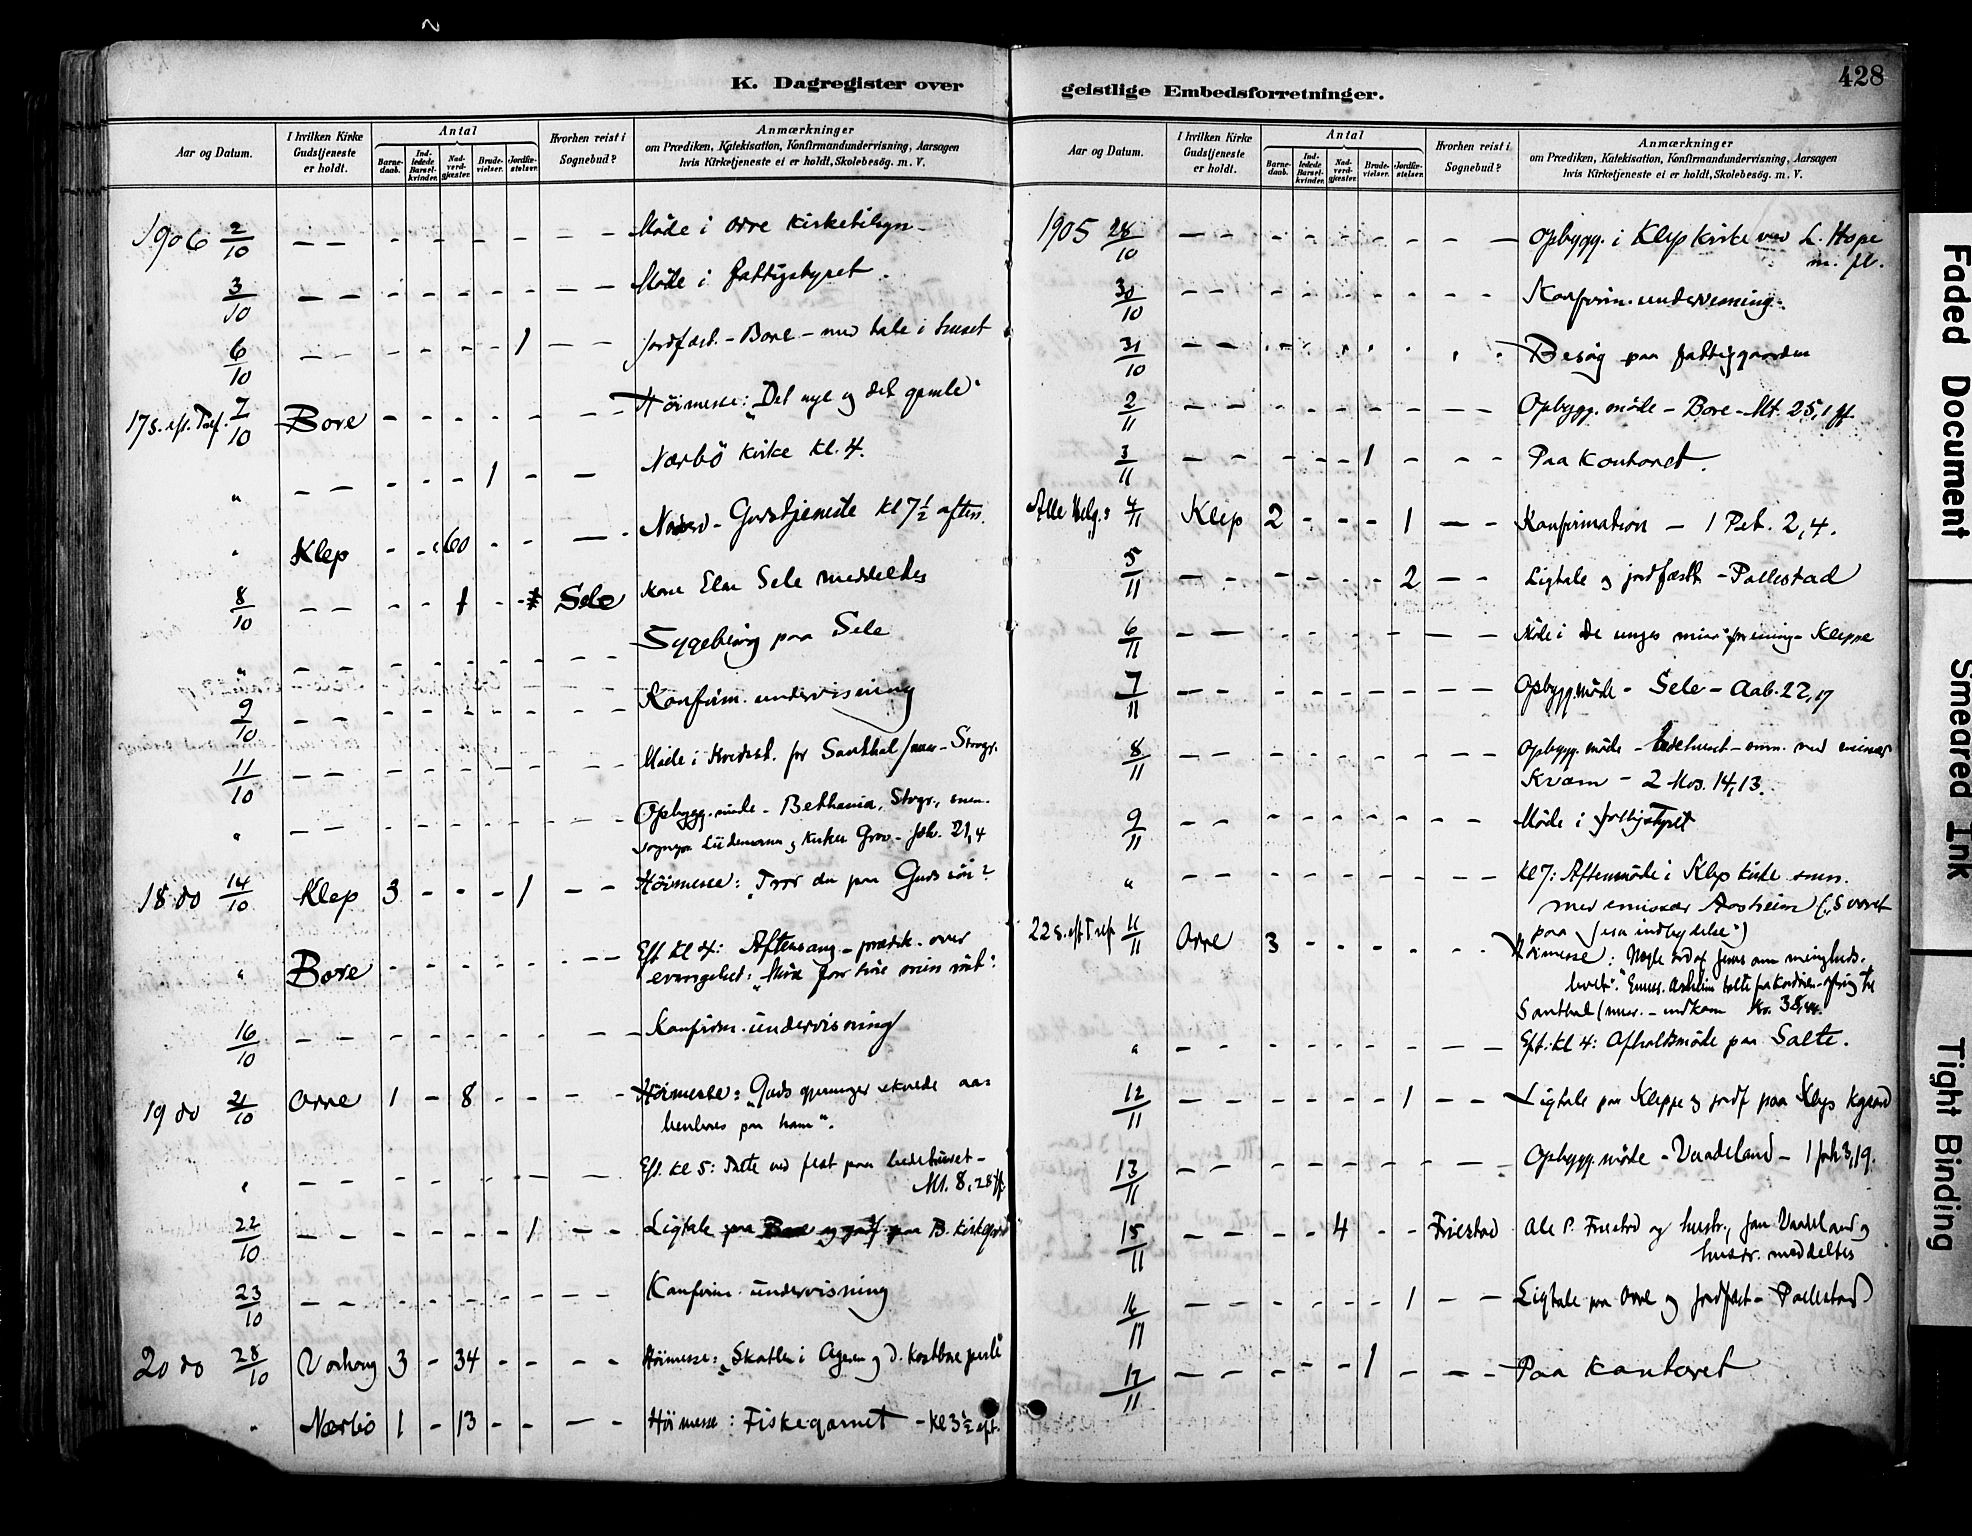 428
K. Dagregister over
geistlige Embedsforretninger.
Aar og Datum.
I hvilken Kirke Gudstjeneste er holdt.
Antal
Barne-daab.
Ind-ledede Barsel-kvinder.
Nad-verd-gjæster.
Brude-vielser.
Jordfæ-stelser.
Hvorhen reist i Sognebud?
Anmærkninger
om Prædiken, Katekisation, Konfirmandundervisning, Aarsagen
hvis Kirketjeneste ei er holdt, Skolebesög. m. V.
1906 2/10 - - - - - - - - - Møde i Orre kirketilsyn
3/10 - - - - - - - - - Møde i fattigstyret.
6/10 - - - - - - 1 - - Jordfæst. - Bore - med tale i huset
17 s. eft. Tref. 7/10 Bore - - - - - - - Høimesse: "Det nye og det gamle"
" - - - - - 1 - - Nærbö kirke kl. 4.
" Klep - - 60 - - - - Gudstjeneste kl 7½ aften.
8/10 - - - - 1 - - Sele Kone Elen Sele meddeltes
" - - - - - - - - - Sygebesøg paa Sele
9/10 - - - - - - - - - Konfirm. undervisning
11/10 - - - - - - - - - Møde i Kredsst. for Santhalmiss. - Stvgr.
" - - - - - - - - - Opbygg. møde - Bethania, Stvgr., smn.
- Joh. 21,4
18 do 14/10 Klep 3 - - - 1 - - Høimesse: "Tror du paa Guds søn?
" Bore - - - - - - - Eft. kl 4: Aftensang - prædik. over
evangeliet:
16/10 - - - - - - - - - Konfirm. undervisning
19 do 21/10 Orre 1 - 8 - - - - Høimesse: "Guds gjerninger skulde aa-
benbares paa ham".
" - - - - - - - - - Eft. kl 5: Tale ved fest paa bedehuset -
Mt. 8,28 ff.
22/10 - - - - - - 1 - - Ligtale paa Bore og jordf. paa B. kirkegaard
23/10 - - - - - - - - - Konfirm. undervisning
20 do 28/10 Varhaug 3 - 34 - - - - Høimesse: "Skatten i Ageren og d. kostbare perle"
" Nærbö 1 - 13 - - - - Høimesse: Fiskegarnet - kl 3½ eft.
Aar og Datum.
I hvilken Kirke Gudstjeneste er holdt.
Antal
Barne-daab.
Ind-ledede Barsel-kvinder.
Nad-verd-gjæster.
Brude-vielser.
Jordfæ-stelser.
Hvorhen reist i Sognebud?
Anmærkninger
om Prædiken, Katekisation, Konfirmandundervisning, Aarsagen
hvis Kirketjeneste ei er holdt, Skolebesög. m. V.
1905 28/10 - - - - - - - - - Opbygg. i Klep kirke ved L. Hope
m. fl.
30/10 - - - - - - - - - Konfirm. undervisning.
31/10 - - - - - - - - - Besøg paa fattiggaarden
2/11 - - - - - - - - - Opbygg. møde - Bore - Mt. 25,1 ff
3/11 - - - - - 1 - - - Paa kontoret.
Alle Helg. s 4/11 Klep 2 - - - 1 - - Konfirmation - 1 Pet. 2,4.
5/11 - - - - - - 2 - - Ligtale og jordfæst - Pollestad
6/11 - - - - - - - - - Møde i De unges forening - Kleppe
7/11 - - - - - - - - - Opbygg. møde - Sele - Aab. 22,17
8/11 - - - - - - - - - Opbygg. møde - bedehuset - smn. med emissær
Kvam - 2 Mos. 14,13.
9/11 - - - - - - - - - Møde i fattigstyret
" - - - - - - - - - kl 7: Aftenmøde i Klep kirke smn.
med emissær Aasheim ("Svaret
paa Jesu indbydelse")
22 s. eft Tref 11/11 Orre 3 - - - - - - Høimesse: Nogle ord af Jesus om menigheds-
livet". Emiss. Aasheim talte fra kordøren - ofring til
Santhalmiss. - indkom Kr. 38,44.
" - - - - - - - - - Eft. kl 4: Afholdsmøde paa Salte.
12/11 - - - - - - 1 - - Ligtale paa Kleppe og jordf paa Klep kgaard
13/11 - - - - - - - - - Opbygg. møde - Vaadeland - 1 Joh 3,19.
15/11 - - - - 4 - - Friestad Ole P. Friestad og hustr., Jan Vaadeland og
hustr. meddeltes
16/11 - - - - - - 1 - - Ligtale paa Orre og Jordfæst - Pollestad
17/11 - - - - - 1 - - - Paa kontoret
Faded Document
Smeared Ink
Tight Binding